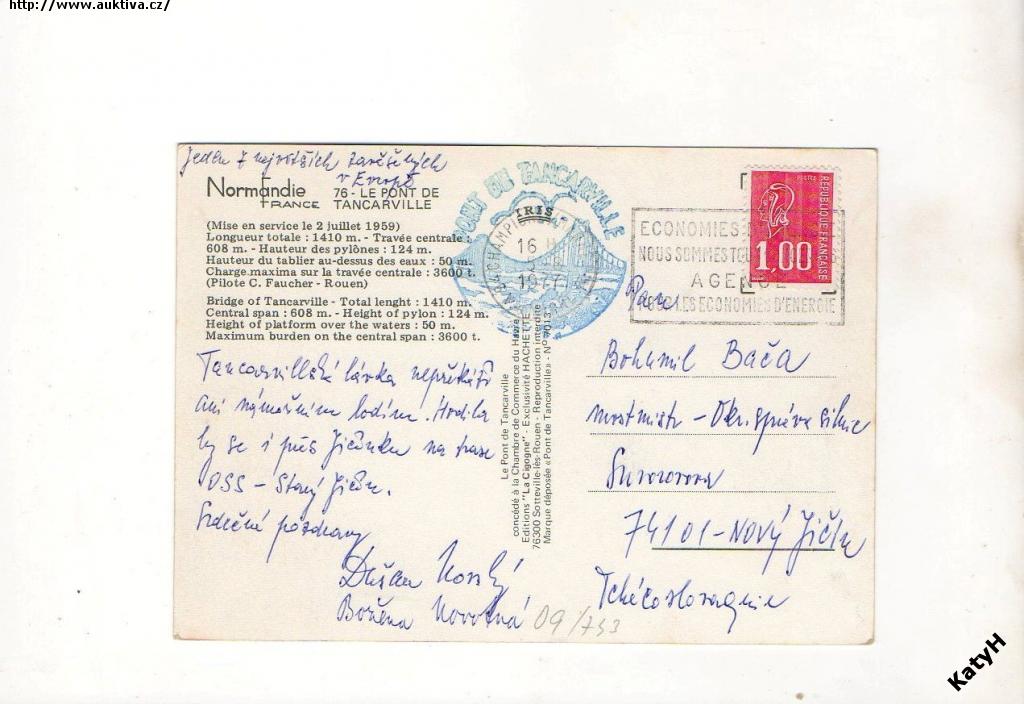 http://www.auktiva.cz/
Jeden z největších zavěšených
v Evropě
Normandie
FRANCE
76 - LE PONT DE
TANCARVILLE
(Mise en service le 2 juillet 1959)
Longueur totale : 1410 m. - Travée centrale :
608 m. - Hauteur des pylônes : 124 m.
Hauteur du tablier au-dessus des eaux : 50 m.
Charge maxima sur la travée centrale : 3600 t.
(Pilote C. Faucher - Rouen)
Bridge of Tancarville - Total lenght : 1410 m.
Central span : 608 m. - Height of pylon : 124 m.
Height of platform over the waters : 50 m.
Maximum burden on the central span : 3600 t.
Tancarvillská lávka nepřekáží
ani námořním lodím. Hodila
by se i přes Jičínku na trase
OSS - Starý Jičín.
Srdečné pozdravy
Dušan
Božena Novotná
09/753
PONT DE TANCARVILLE
16 H
IRIS
Le Pont de Tancarville
concédé à la Chambre de Commerce du Havre
Editions "La Cigogne" - Exclusivité HACHETTE
76300 Sotteville-lès-Rouen - Reproduction interdite
Marque déposée « Pont de Tancarville » - N°
ECONOMIES
NOUS SOMMES
AGENCE
LES ECONOMIES D'ENERGIE
POSTES
REPUBLIQUE FRANCAISE
1,00
Pan
Bohumil Bača
mostmistr - Okr. správa silnic
Suvorova
74101 - NOVÝ Jičín
Tchécoslovaquie
KatyH